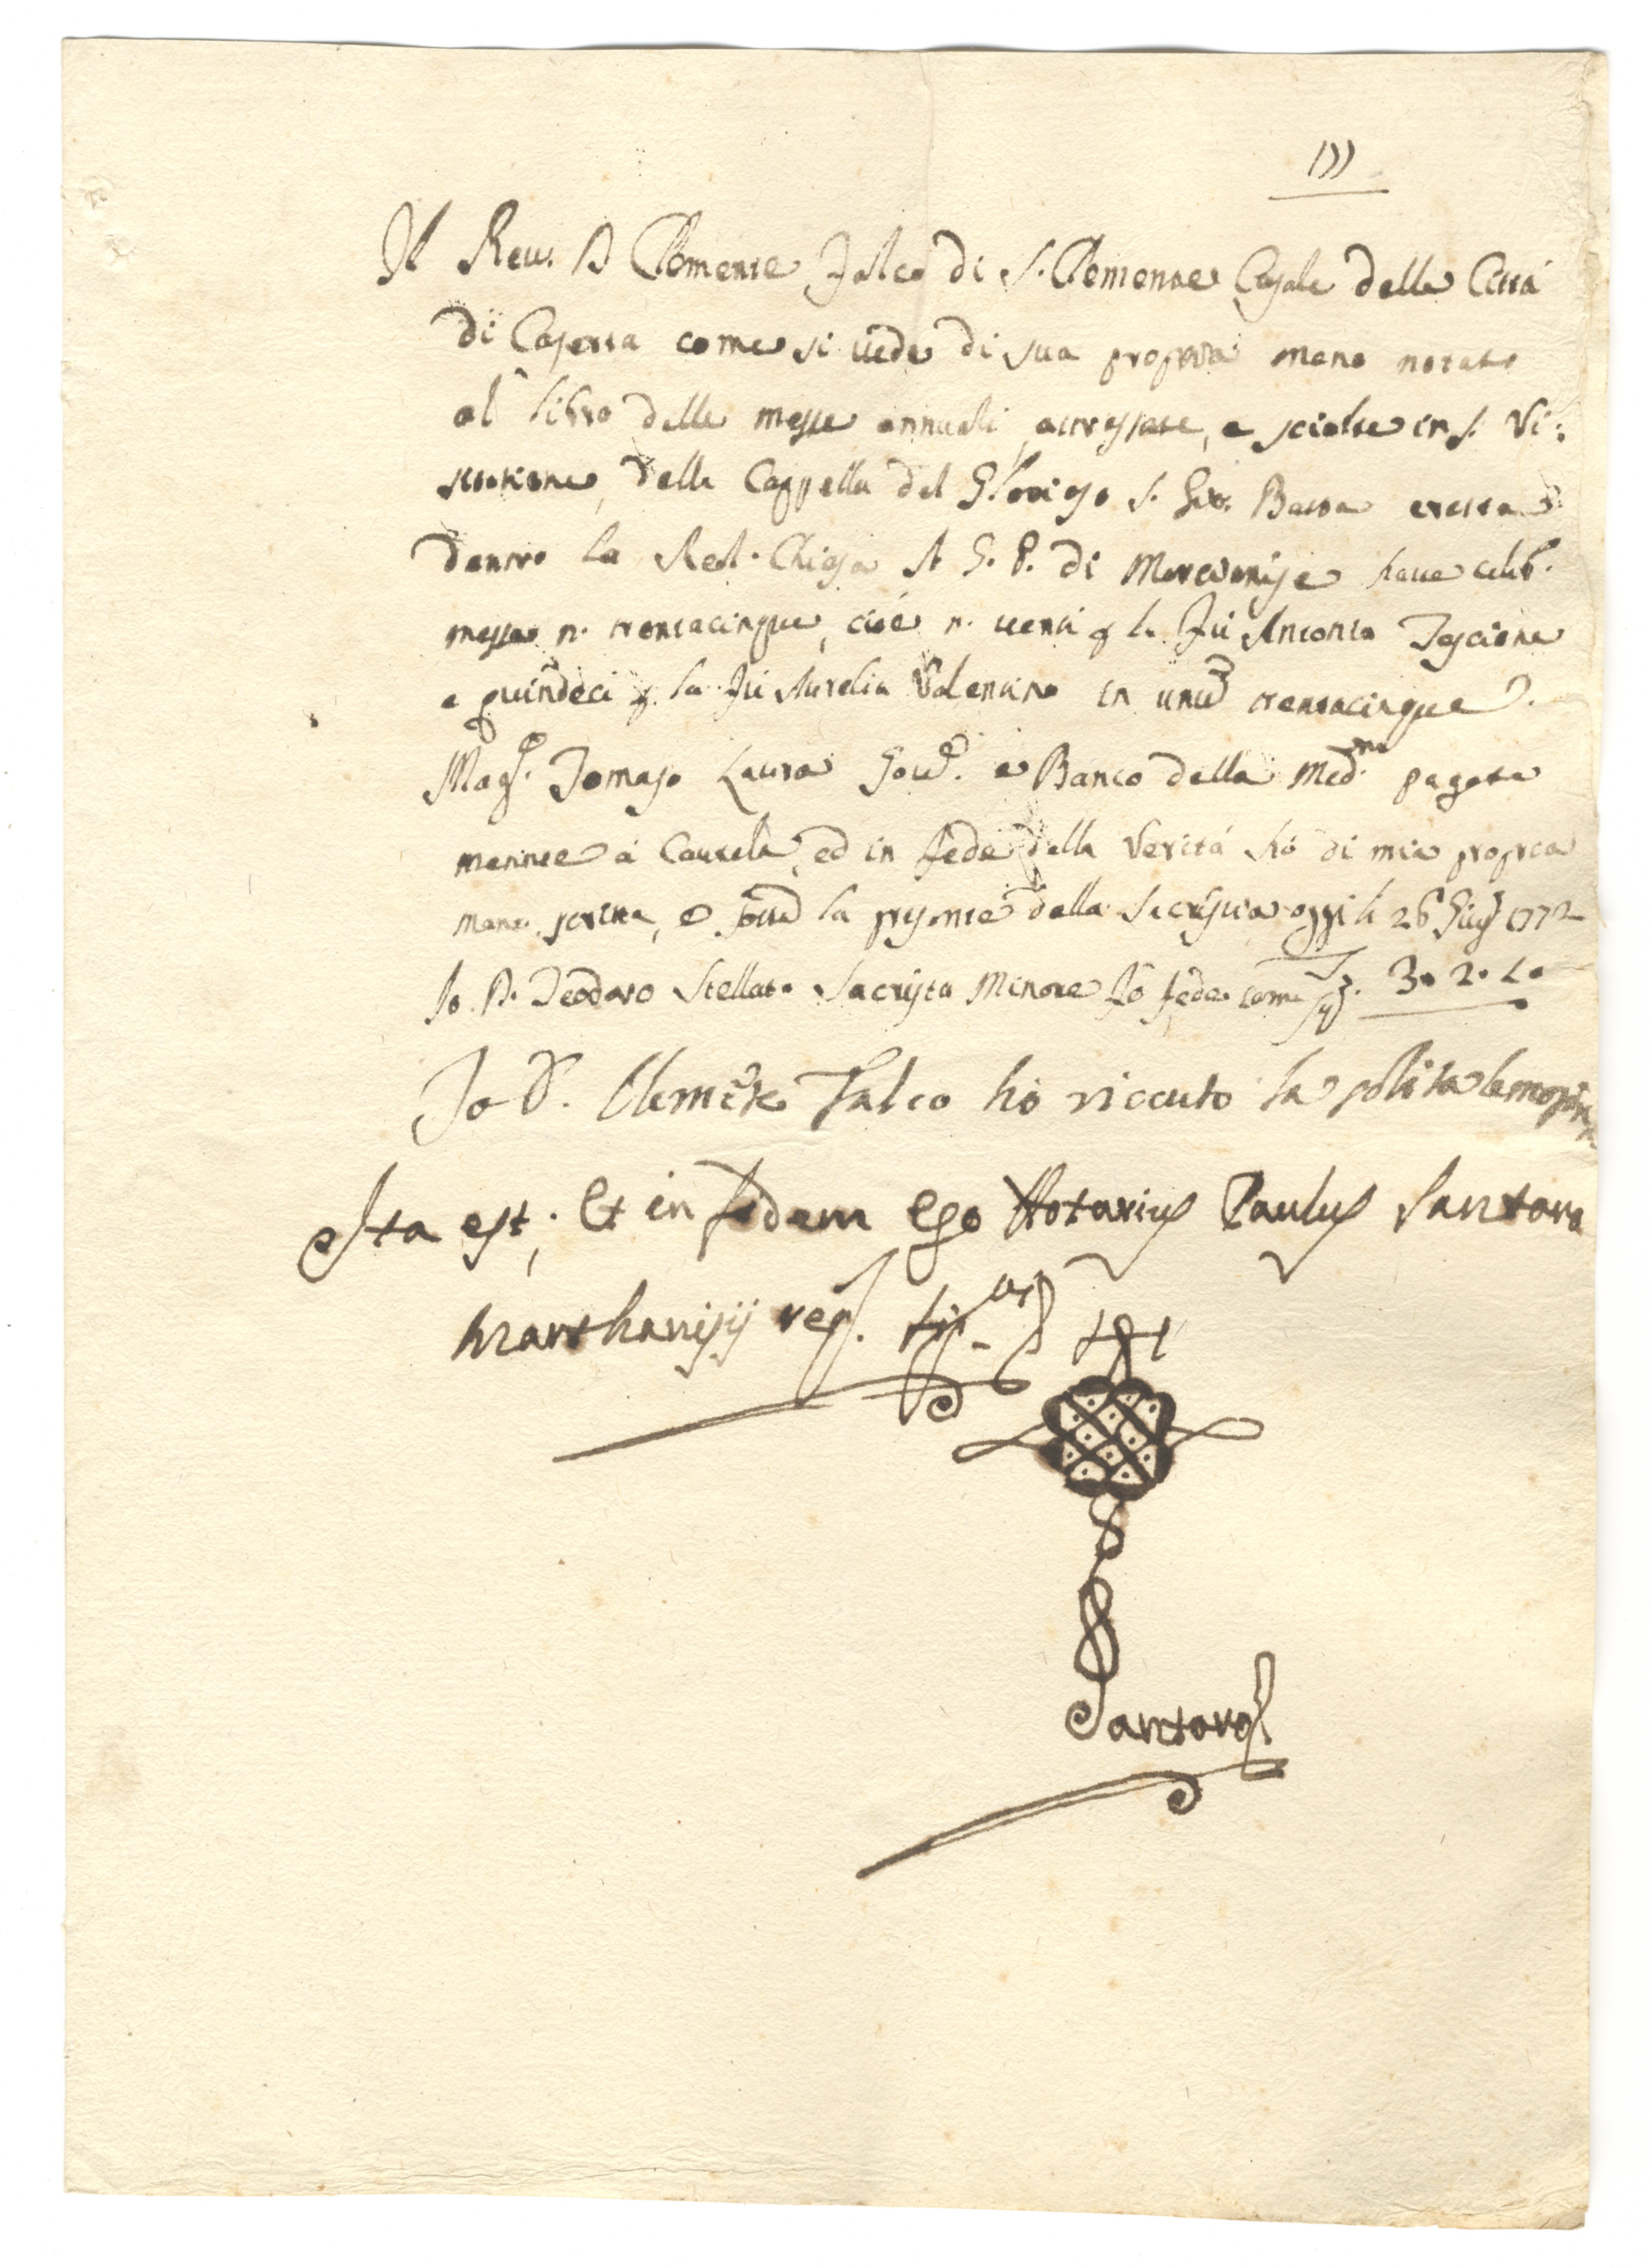 Il Reu. D Clemente Falco di S. Clemente Casale della Cittá
di Caserta come si uede di sua propria mano notato
al libro delle messe annuali, e sciolte in s. Vi:
della Cappella del Glorioso S. Gio: Batta eretta
dentro la Real. Chiesa A. G. P. di Marcianise haue celeb.
messe n. trentacinque, cioé n. uenti p la fú Antonia Tascione
e quindeci p. la fú Aurelia Valentino in unũ trentacinque.
Magco. Tomaso Laura Gou. e Banco della Medma pagate
mente á Cautela, ed in fede della Veritá hó di mia propria
mano scritta, e la presente della Sacristia oggi li 26 Giug 1772
Io D. Teodoro Stellato Sacrista Minore fó fede come sopra. 3. 2. 10
Io D. Clemẽte Falco hó riceuto la solita lemosina
Ita est; Et in fidem Ego Notarius Paulus Santoro
Marthanisij req.
Santoro